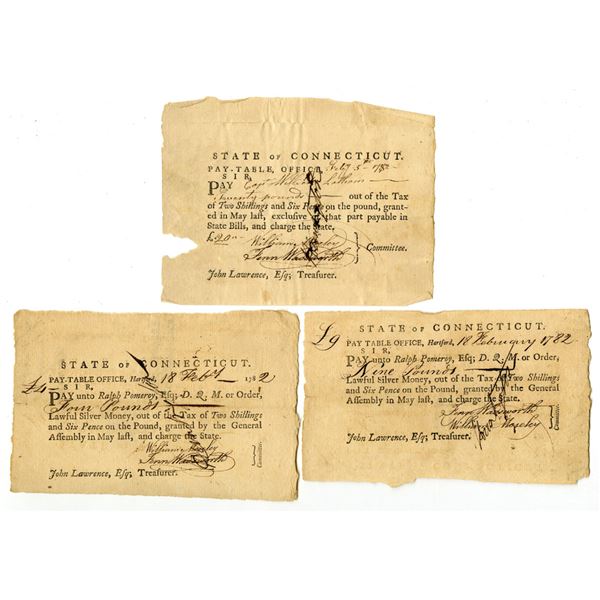 STATE OF CONNECTICUT.
PAY-TABLE, OFFICE, Feby 5th 1782
SIR,
PAY Capt William Latham
Twenty pounds out of the Tax
of Two Shillings and Six Pence on the pound, grant-
ed in May last, exclusive of that part payable in
State Bills, and charge the State.
£20
William Moseley
Fenn Wadsworth
Committee.
John Lawrence, Esq; Treasurer.
STATE OF CONNECTICUT.
PAY-TABLE OFFICE, Hartford, 18 Feby 1782
SIR,
£4
PAY unto Ralph Pomeroy, Esq; D. Q. M. or Order,
Four Pounds
Lawful Silver Money, out of the Tax of Two Shillings
and Six Pence on the Pound, granted by the General
Assembly in May last, and charge the State.
William Moseley
Fenn Wadsworth
Committee.
John Lawrence, Esq; Treasurer.
£9
STATE OF CONNECTICUT.
PAY TABLE OFFICE, Hartford, 18 February 1782
SIR,
PAY unto Ralph Pomeroy, Esq; D. Q. M. or Order,
Nine Pounds
Lawful Silver Money, out of the Tax of Two Shillings
and Six Pence on the Pound, granted by the General
Assembly in May last, and charge the State.
Fenn Wadsworth
William Moseley
Committee.
John Lawrence, Esq; Treasurer.